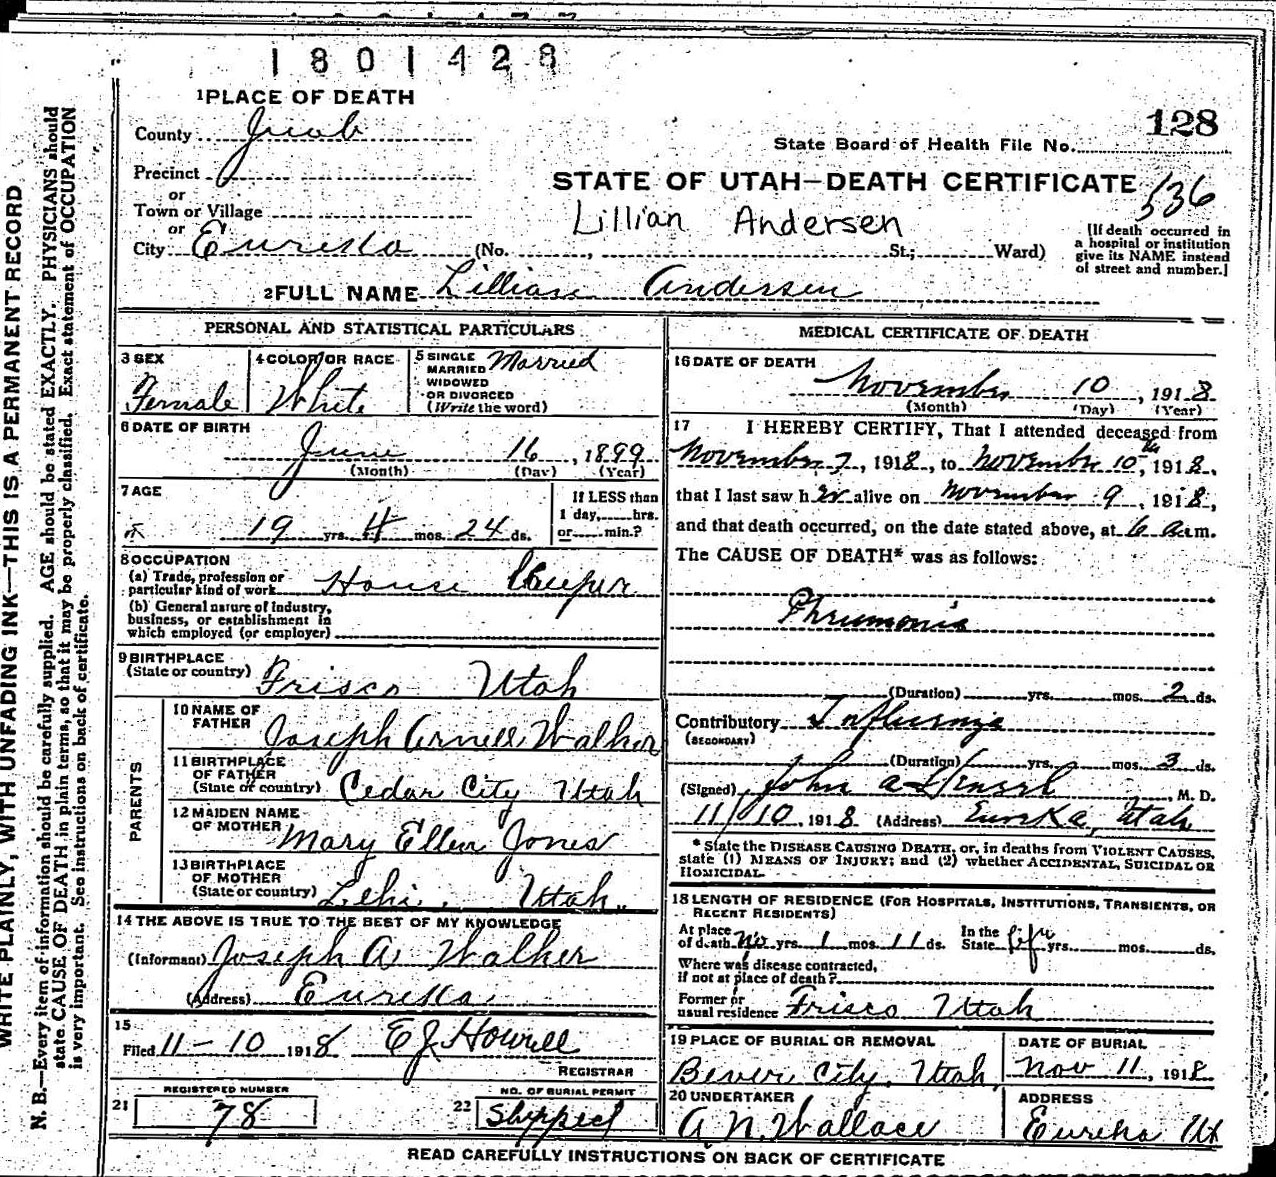 1801428
1 PLACE OF DEATH
128
County Juab
State Board of Health File No.
Precinct
or
STATE OF UTAH—DEATH CERTIFICATE
536
Town or Village
or
Lillian Andersen
City Eureka (No. , St.; Ward)
[If death occurred in
a hospital or institution
give its NAME instead
of street and number.]
2 FULL NAME Lillian Andersen
PERSONAL AND STATISTICAL PARTICULARS
3 SEX
Female
4 COLOR OR RACE
White
5 SINGLE
MARRIED
WIDOWED
OR DIVORCED
(Write the word)
Married
6 DATE OF BIRTH
June 16, 1899
(Month) (Day) (Year)
7 AGE
19 yrs. 4 mos. 24 ds.
If LESS than
1 day, hrs.
or min.?
8 OCCUPATION
(a) Trade, profession or
particular kind of work House Keeper
(b) General nature of industry,
business, or establishment in
which employed (or employer)
9 BIRTHPLACE
(State or country) Frisco Utah
PARENTS
10 NAME OF
FATHER Joseph Arnell Walker
11 BIRTHPLACE
OF FATHER
(State or country) Cedar City Utah
12 MAIDEN NAME
OF MOTHER Mary Ellen Jones
13 BIRTHPLACE
OF MOTHER
(State or country) Lehi, Utah.
14 THE ABOVE IS TRUE TO THE BEST OF MY KNOWLEDGE
(Informant) Joseph A Walker
(Address) Eureka
15
Filed 11-10 1918 E J Howell
REGISTRAR
REGISTERED NUMBER
21 78
NO. OF BURIAL PERMIT
22 Shipped
MEDICAL CERTIFICATE OF DEATH
16 DATE OF DEATH
November 10, 1918
(Month) (Day) (Year)
17 I HEREBY CERTIFY, That I attended deceased from
November 7, 1918, to November 10th, 1918,
that I last saw her alive on November 9, 1918,
and that death occurred, on the date stated above, at 6 a.m.
The CAUSE OF DEATH* was as follows:
Phneumonia
(Duration) yrs. mos. 2 ds.
Contributory Influenza
(SECONDARY)
(Duration) yrs. mos. 3 ds.
(Signed) John A Hensel, M. D.
11/10, 1918 (Address) Eureka, Utah
* State the DISEASE CAUSING DEATH, or, in deaths from VIOLENT CAUSES,
state (1) MEANS OF INJURY; and (2) whether ACCIDENTAL, SUICIDAL OR
HOMICIDAL.
18 LENGTH OF RESIDENCE (FOR HOSPITALS, INSTITUTIONS, TRANSIENTS, OR
RECENT RESIDENTS)
At place
of death No yrs. 1 mos. 11 ds.
In the
State life yrs. mos. ds.
Where was disease contracted,
if not at place of death?
Former or
usual residence Frisco Utah
19 PLACE OF BURIAL OR REMOVAL
Bever City, Utah,
DATE OF BURIAL
Nov 11, 1918
20 UNDERTAKER
A. N. Wallace
ADDRESS
Eureka Ut
READ CAREFULLY INSTRUCTIONS ON BACK OF CERTIFICATE
WRITE PLAINLY, WITH UNFADING INK—THIS IS A PERMANENT RECORD
N. B.—Every item of information should be carefully supplied. AGE should be stated EXACTLY. PHYSICIANS should
state CAUSE OF DEATH in plain terms, so that it may be properly classified. Exact statement of OCCUPATION
is very important. See instructions on back of certificate.